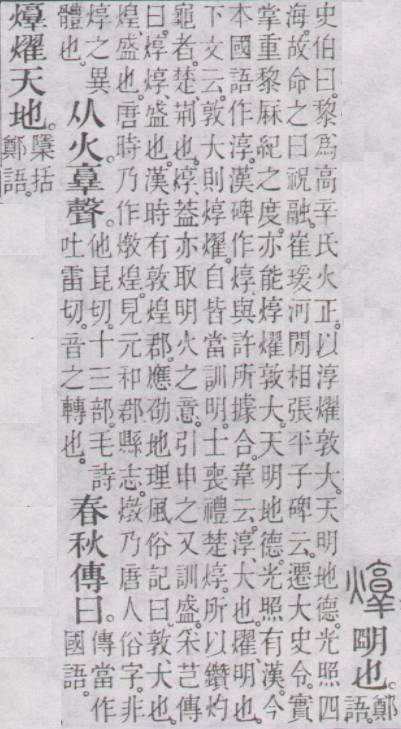 焞明也。鄭語。
史伯曰。黎爲高辛氏火正。以淳燿敦大。天明地德。光照四
海。故命之曰祝融。崔瑗河閒相張平子碑云。遷大史令。實
掌重黎厤紀之度。亦能焞燿敦大。天明地德。光照有漢。今
本國語作淳。漢碑作焞。與許所據合。韋云。淳、大也。燿、明也。
下文云。敦大則焞燿。自皆當訓明。士喪禮楚焞。所以鑽灼
龜者。楚、荆也。焞、葢亦取明火之意。引申之又訓盛。采芑傳
曰。焞焞、盛也。漢時有敦煌郡。應劭地理風俗記曰。敦、大也。
煌、盛也。唐時乃作燉煌。見元和郡縣志。燉乃唐人俗字。非
焞之異
體也。
从火𦎫聲。
他昆切。十三部。毛詩
吐雷切。音之轉也。
春秋傳曰。
傳當作
國語。
焞燿天地。
檃括
鄭語。